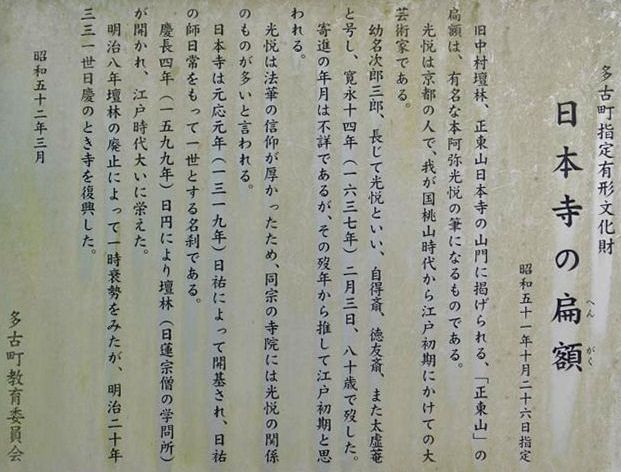 多古町指定有形文化財
日本寺の扁額
へん がく
昭和五十一年十月二十六日指定
旧中村壇林、正東山日本寺の山門に掲げられる、「正東山」の
扁額は、有名な本阿弥光悦の筆になるものである。
光悦は京都の人で、我が国桃山時代から江戸初期にかけての大
芸術家である。
幼名次郎三郎、長して光悦といい、自得斎、徳友斎、また太虚菴
と号し、寛永十四年（一六三七年）二月三日、八十歳で歿した。
寄進の年月は不詳であるが、その歿年から推して江戸初期と思
われる。
光悦は法華の信仰が厚かったため、同宗の寺院には光悦の関係
のものが多いと言われる。
日本寺は元応元年（一三一九年）日祐によって開基され、日祐
の師日常をもって一世とする名刹である。
慶長四年（一五九九年）日円により壇林（日蓮宗僧の学問所）
が開かれ、江戸時代大いに栄えた。
明治八年壇林の廃止によって一時衰勢をみたが、明治二十年
三三一世日慶のとき寺を復興した。
昭和五十二年三月
多古町教育委員会